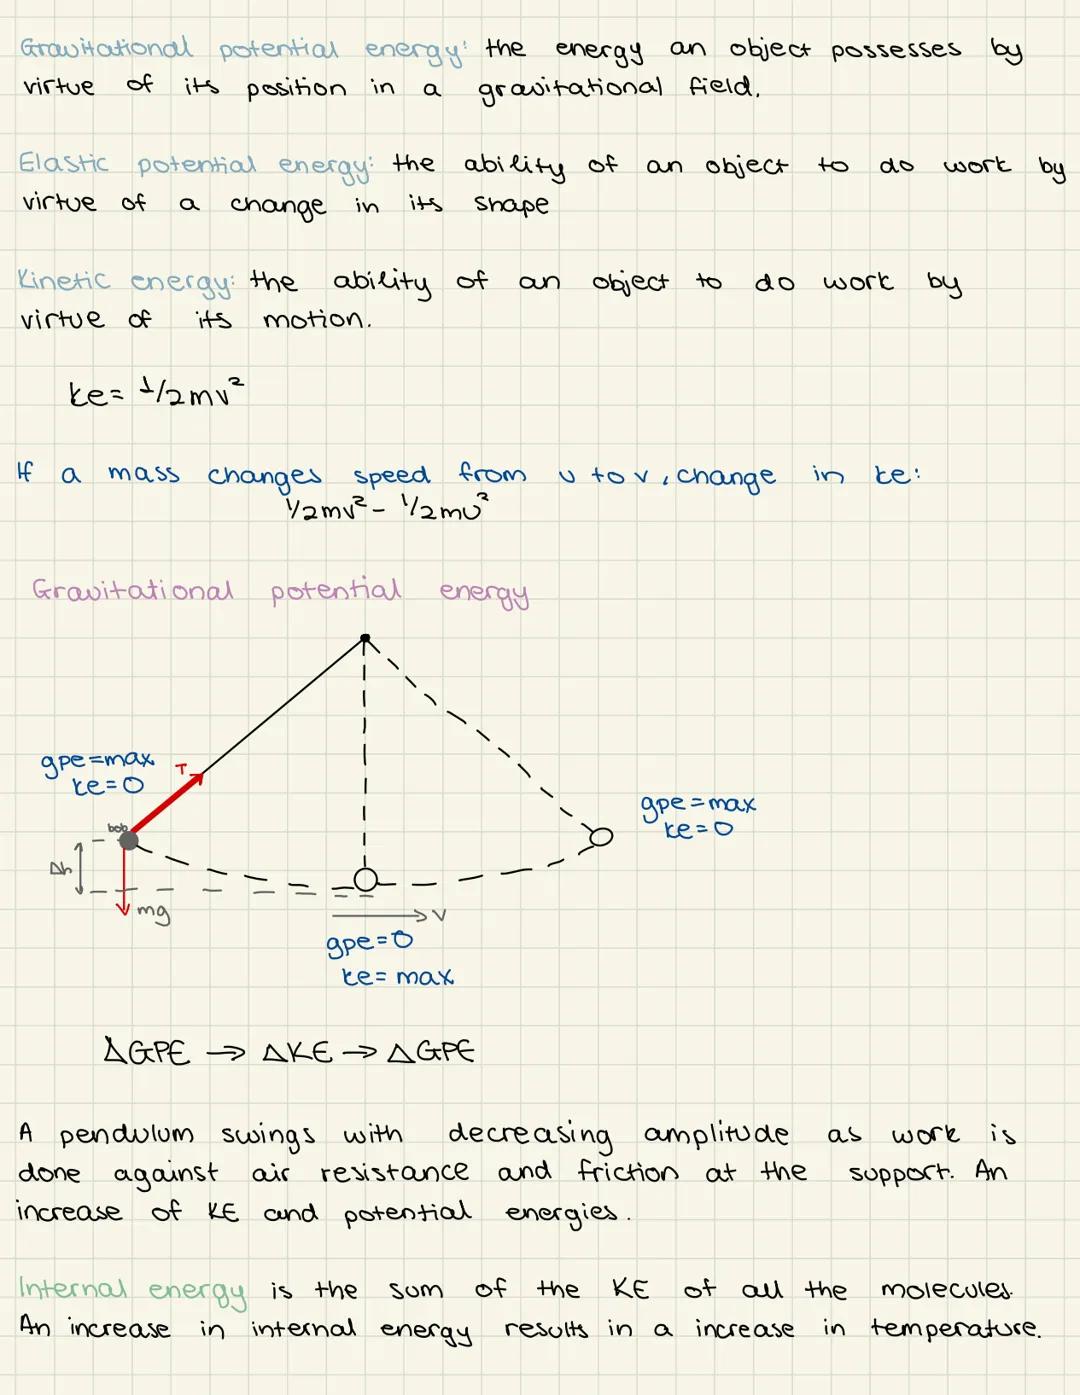 Gravitational potential energy: the energy an object possesses by
virtue of its position in a gravitational field.
Elastic potential energy: the ability of an object to do work by
virtue of a change in its shape
Kinetic energy: the ability of an object to do work by
virtue of its motion.
ke= 1/2mv²
If a mass changes speed from u to v, change in ke:
1/2mv² - 1/2mu²
Gravitational potential energy
gpe=max
ke=0
T
bob
Δh
mg
gpe=max
ke=0
v
gpe=0
ke= max
ΔGPE → ΔKE → ΔGPE
A pendulum swings with decreasing amplitude as work is
done against air resistance and friction at the support. An
increase of KE and potential energies.
Internal energy is the sum of the KE of all the molecules.
An increase in internal energy results in a increase in temperature.